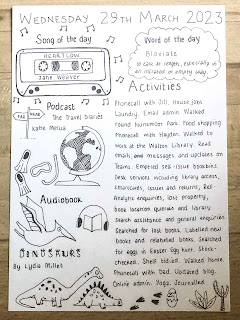 WEDNESDAY 29TH MARCH 2023
Song of the day
HEARTLOW
Jane Weaver
Word of the day
Bloviate
To talk at length, especially in
an inflated or empty way.
Podcast
The Travel Diaries
Katie Melua
Audiobook
DINOSAURS
By Lydia Millet
Activities
Phonecall with Jill. House jobs.
Laundry. Email admin. Walked
round Nunsmoor Park. Food shopping
Phonecall with Hayden. Walked to
work at the Walton Library. Read
emails, and messages and updates on
Teams. Emptied self-issue boxes.
Desk services including library access,
smartcards, issues and returns, Ref
Analytic enquiries, lost property,
book location queries and library
search assistance and general enquiries.
Searched for lost books. Labelled new
books and relabelled books. Searched
for eggs in Easter Egg hunt. Stock-
checked. Shelf tidied. Walked home.
Phonecall with Dad. Updated blog.
Online admin. Yoga. Journalled.